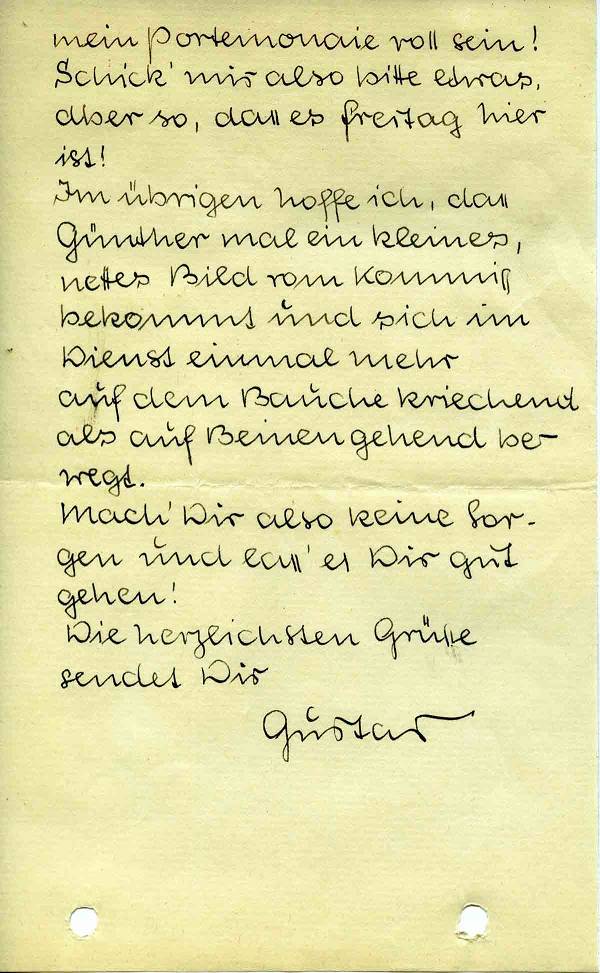 mein Portemonaie voll sein!
Schick' mir also bitte etwas,
aber so, dass es freitag hier
ist!
Im übrigen hoffe ich, dass
Günther mal ein kleines,
nettes Bild vom Kommiß
bekommt und sich im
Dienst einmal mehr
auf dem Bauche kriechend
als auf Beinen gehend be-
wegt.
Mach' Dir also keine Sor-
gen und lass' es Dir gut
gehen!
Die herzlichsten Grüße
sendet Dir
Gustav